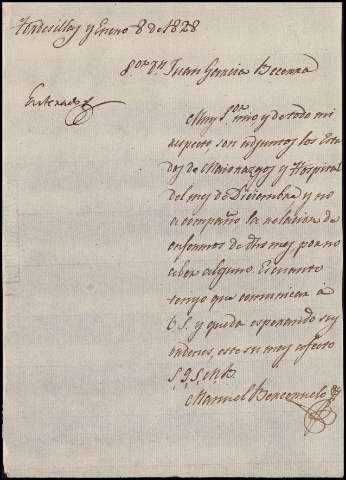 Tordesillas y Enero 8 de 1828
S.or D.n Juan Garcia Becerra
Enterado
Muy S.or mio y de todo mi
respecto son adjuntos los Esta
dos de Maiorazgos y Hospital
del mes de Diciembre y no
acompaño la relacion de
enfermos de dho mes por no
aber alguno. Es cuanto
tengo que comunicar à
V.S. y queda esperando sus
ordenes, este su muy afecto
S. Q. S. M. B.
Manuel